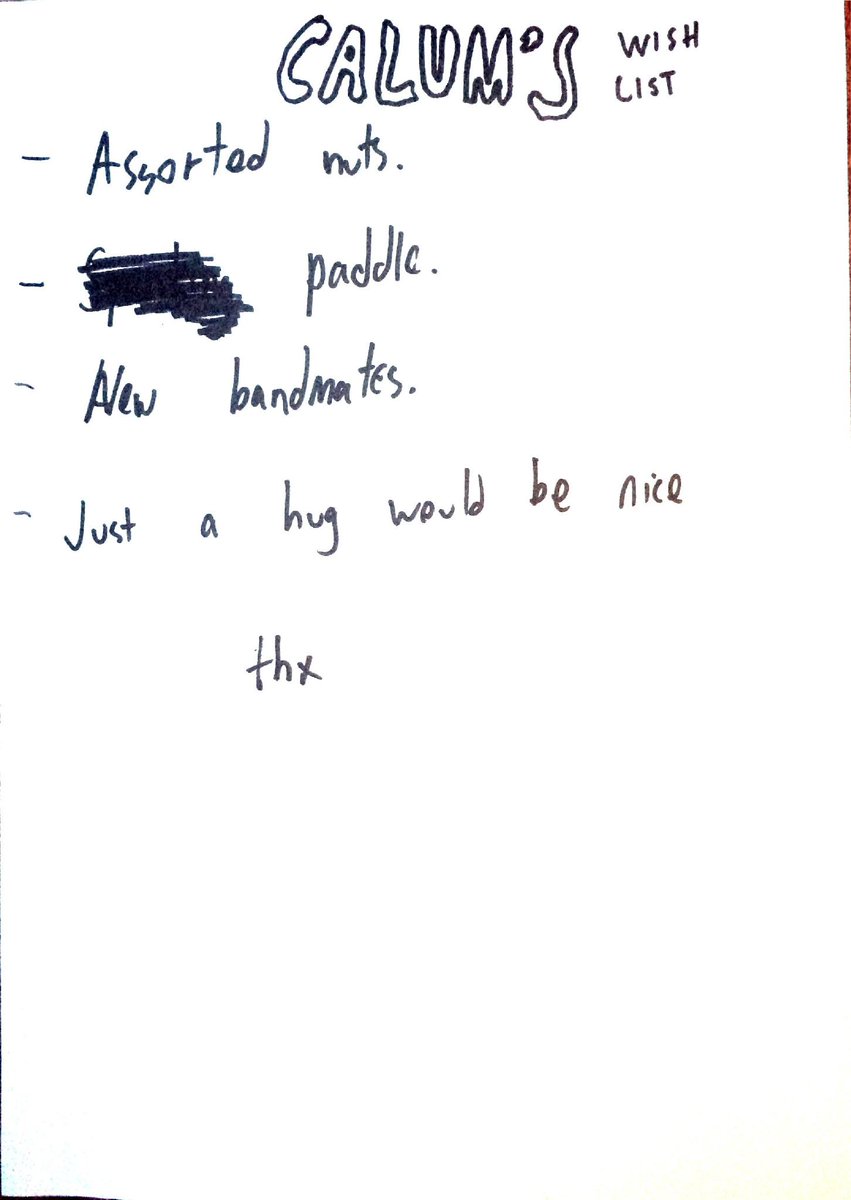 CALUM'S WISH LIST
- Assorted nuts.
- paddle.
- New bandmates.
- Just a hug would be nice
thx